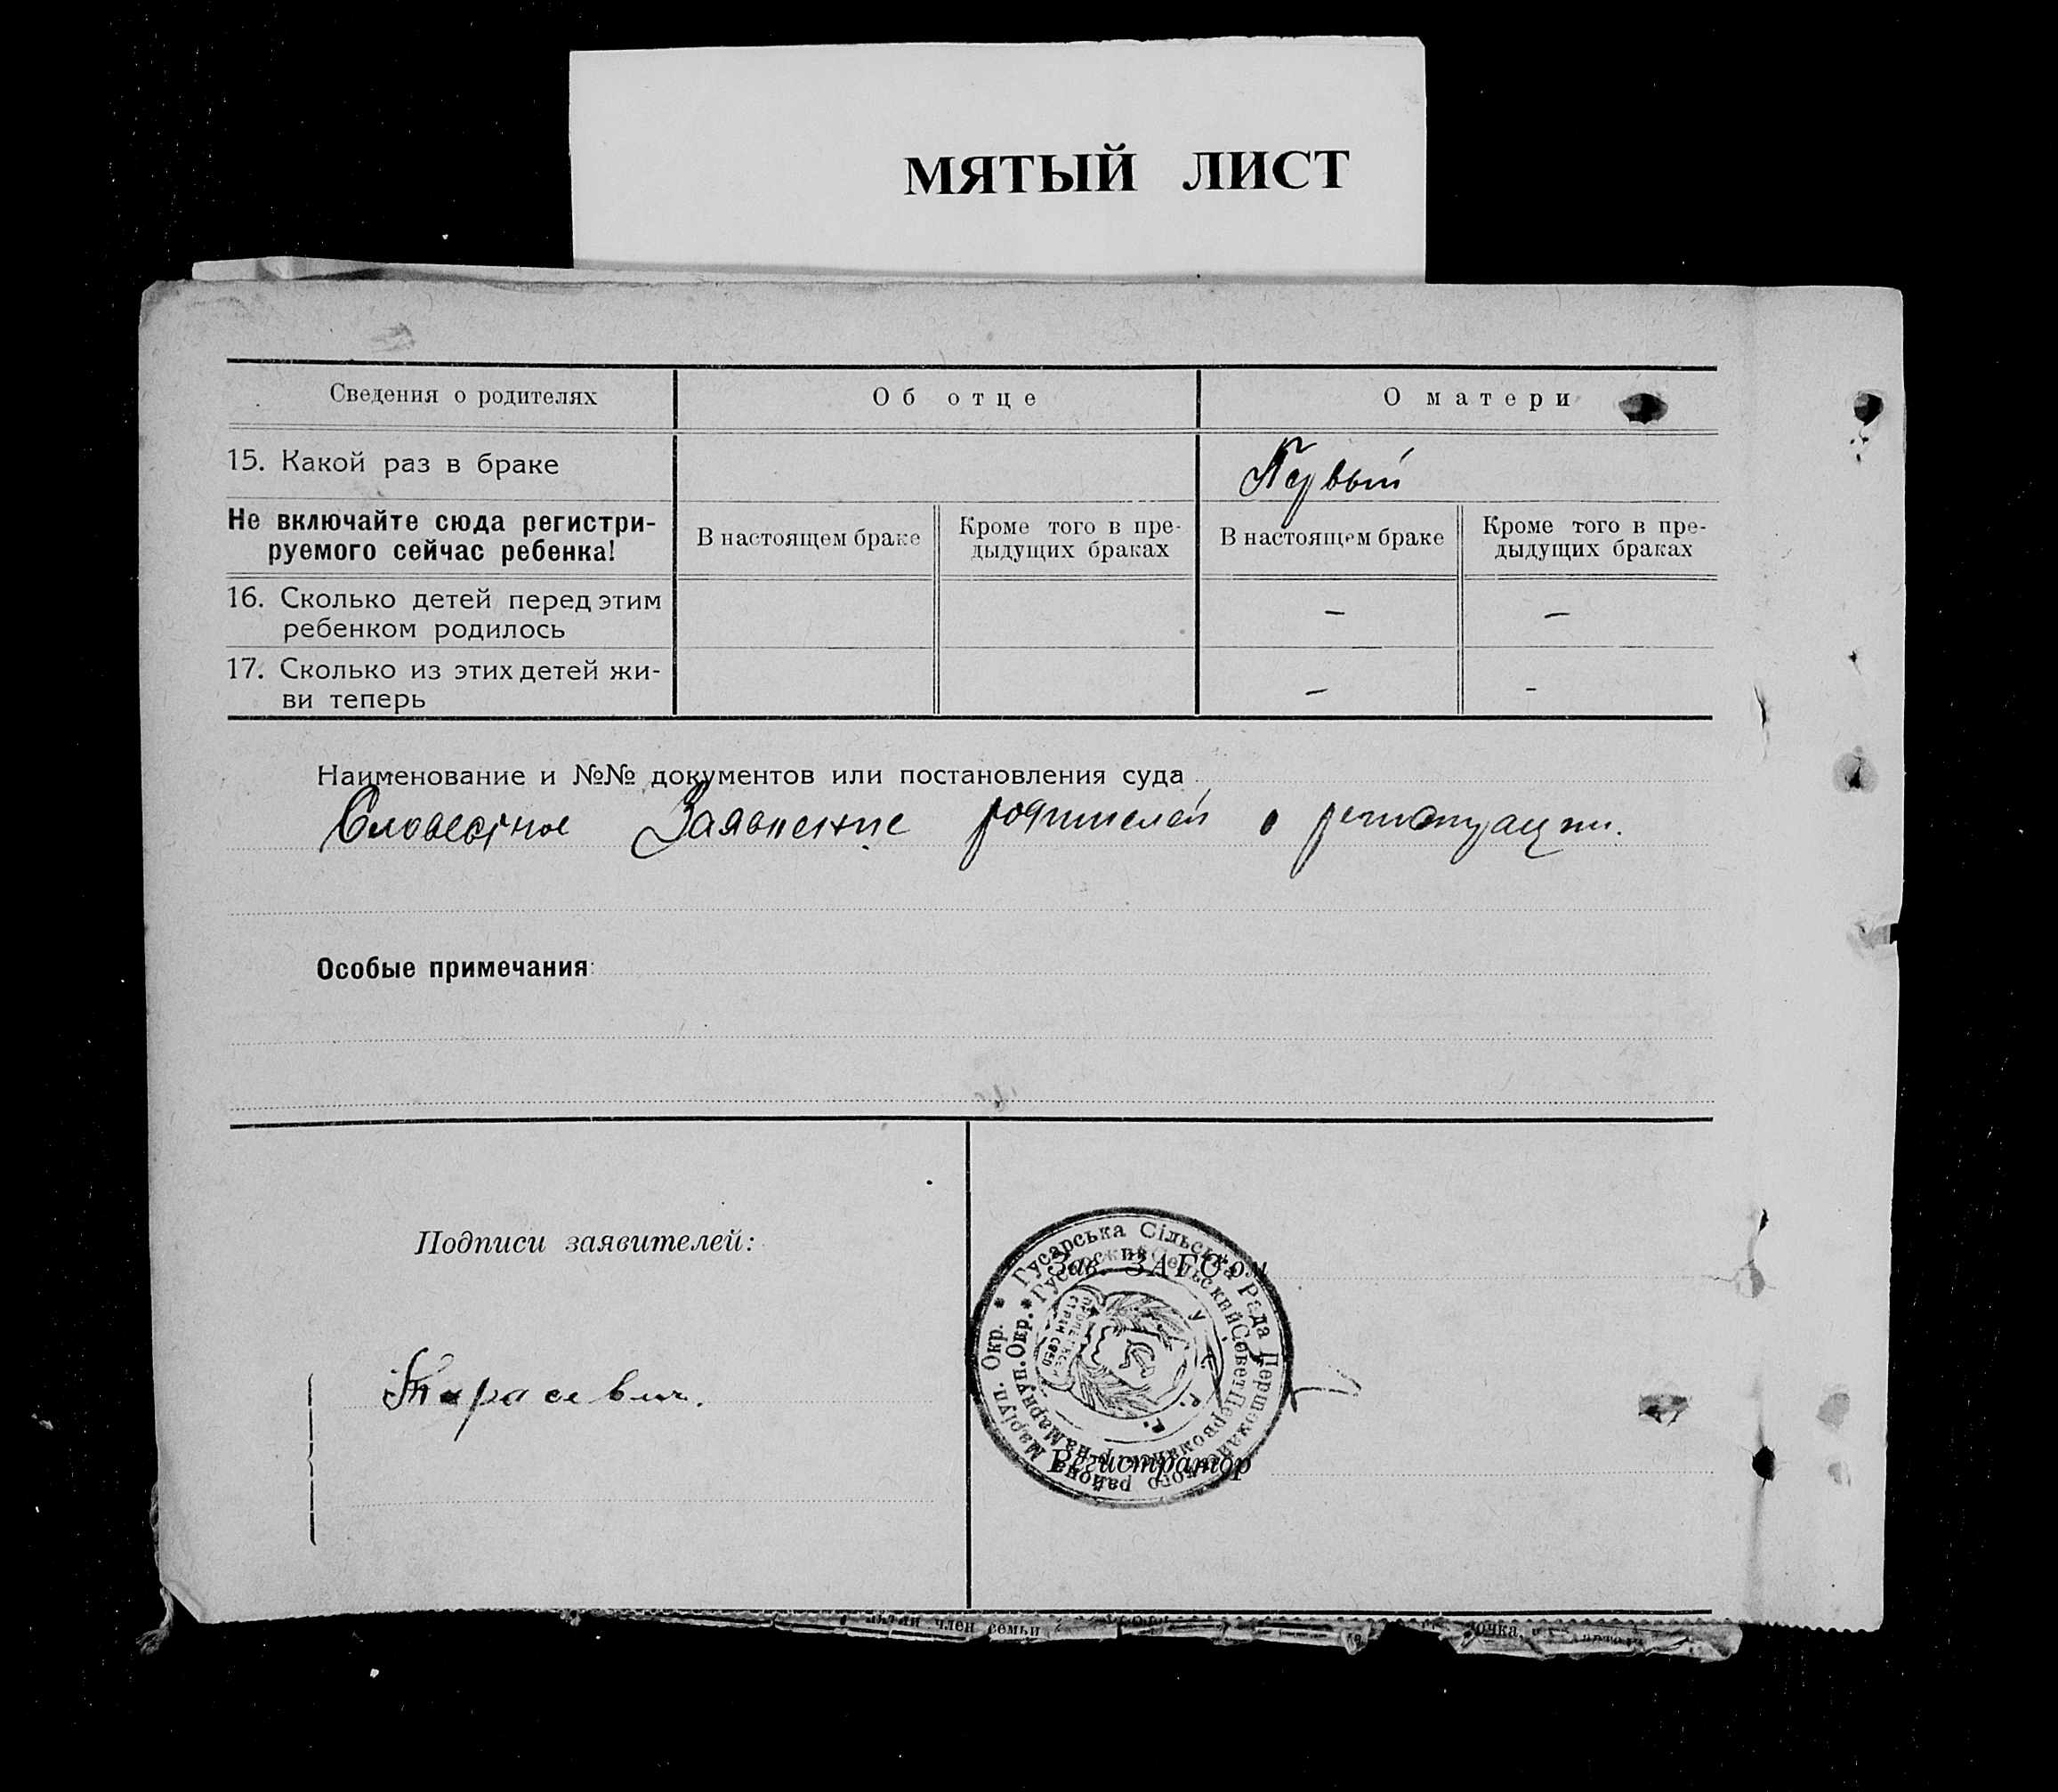 МЯТЫЙ ЛИСТ
Сведения о родителях
Об отце
О матери
15. Какой раз в браке
Первый
Не включайте сюда регистри-
руемого сейчас ребенка!
В настоящем браке
Кроме того в пре-
дыдущих браках
В настоящем браке
Кроме того в пре-
дыдущих браках
16. Сколько детей перед этим
ребенком родилось
–
–
17. Сколько из этих детей жи-
ви теперь
–
-
Наименование и №№ документов или постановления суда
Словесное Заявление родителей о регистрации.
Особые примечания:
Подписи заявителей:
Тарасевич.
Зав. ЗАГСом
Регистратор
* Гусарська Сільська Рада Першомайського району Маріуп. Окр.
* Гусарский Сельский Совет Первомайск. р-на Мариуп. Окр.
У. С. Р. Р.
член семьи